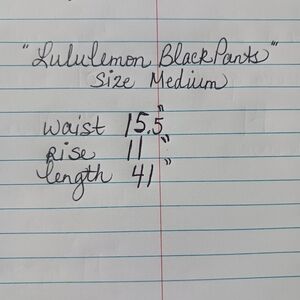 "Lululemon Black Pants"
Size Medium
waist 15.5"
rise 11"
length 41"